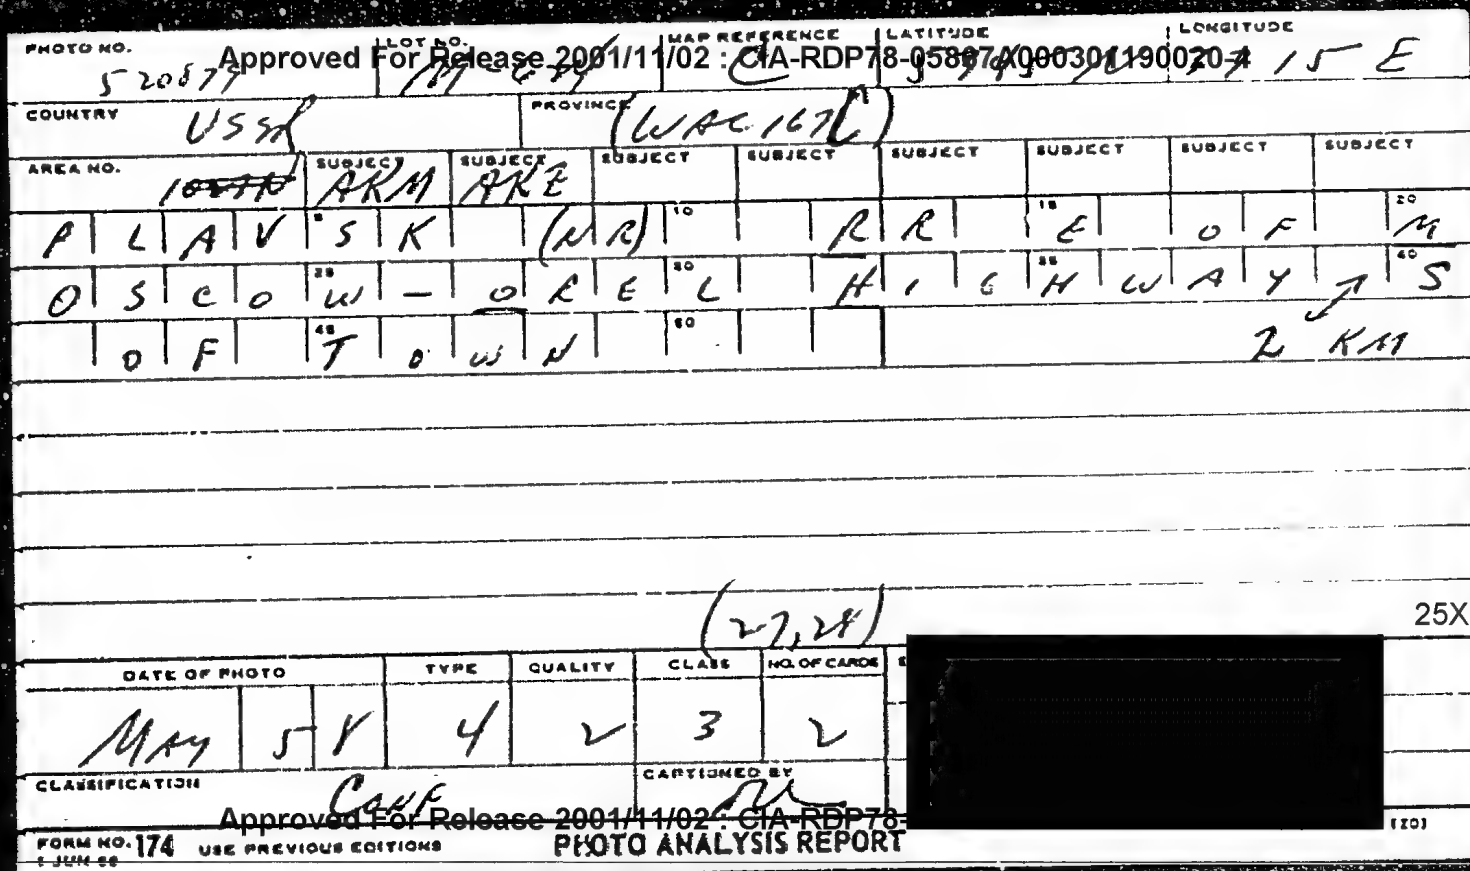 PHOTO NO. LOT NO. MAP REFERENCE LATITUDE LONGITUDE
Approved For Release 2001/11/02 : CIA-RDP78-05887A000301190020-4
15 E
COUNTRY USSR PROVINCE (WAC 167C)
AREA NO. SUBJECT SUBJECT SUBJECT SUBJECT SUBJECT SUBJECT SUBJECT SUBJECT
AKM AKE
PLAVSK (NR) 10 RR 15 E OF 20 M
OSCOW - 25 OREL 30 HIGHWAY 35 40 S
OF 45 TOWN 50 2 KM
(27,28)
25X
DATE OF PHOTO TYPE QUALITY CLASS NO. OF CARDS
MAY 58 4 2 3 2
CLASSIFICATION CONF CAPTIONED BY
Approved For Release 2001/11/02 : CIA-RDP78-
FORM NO. 174 USE PREVIOUS EDITIONS PHOTO ANALYSIS REPORT
1 JUN 56